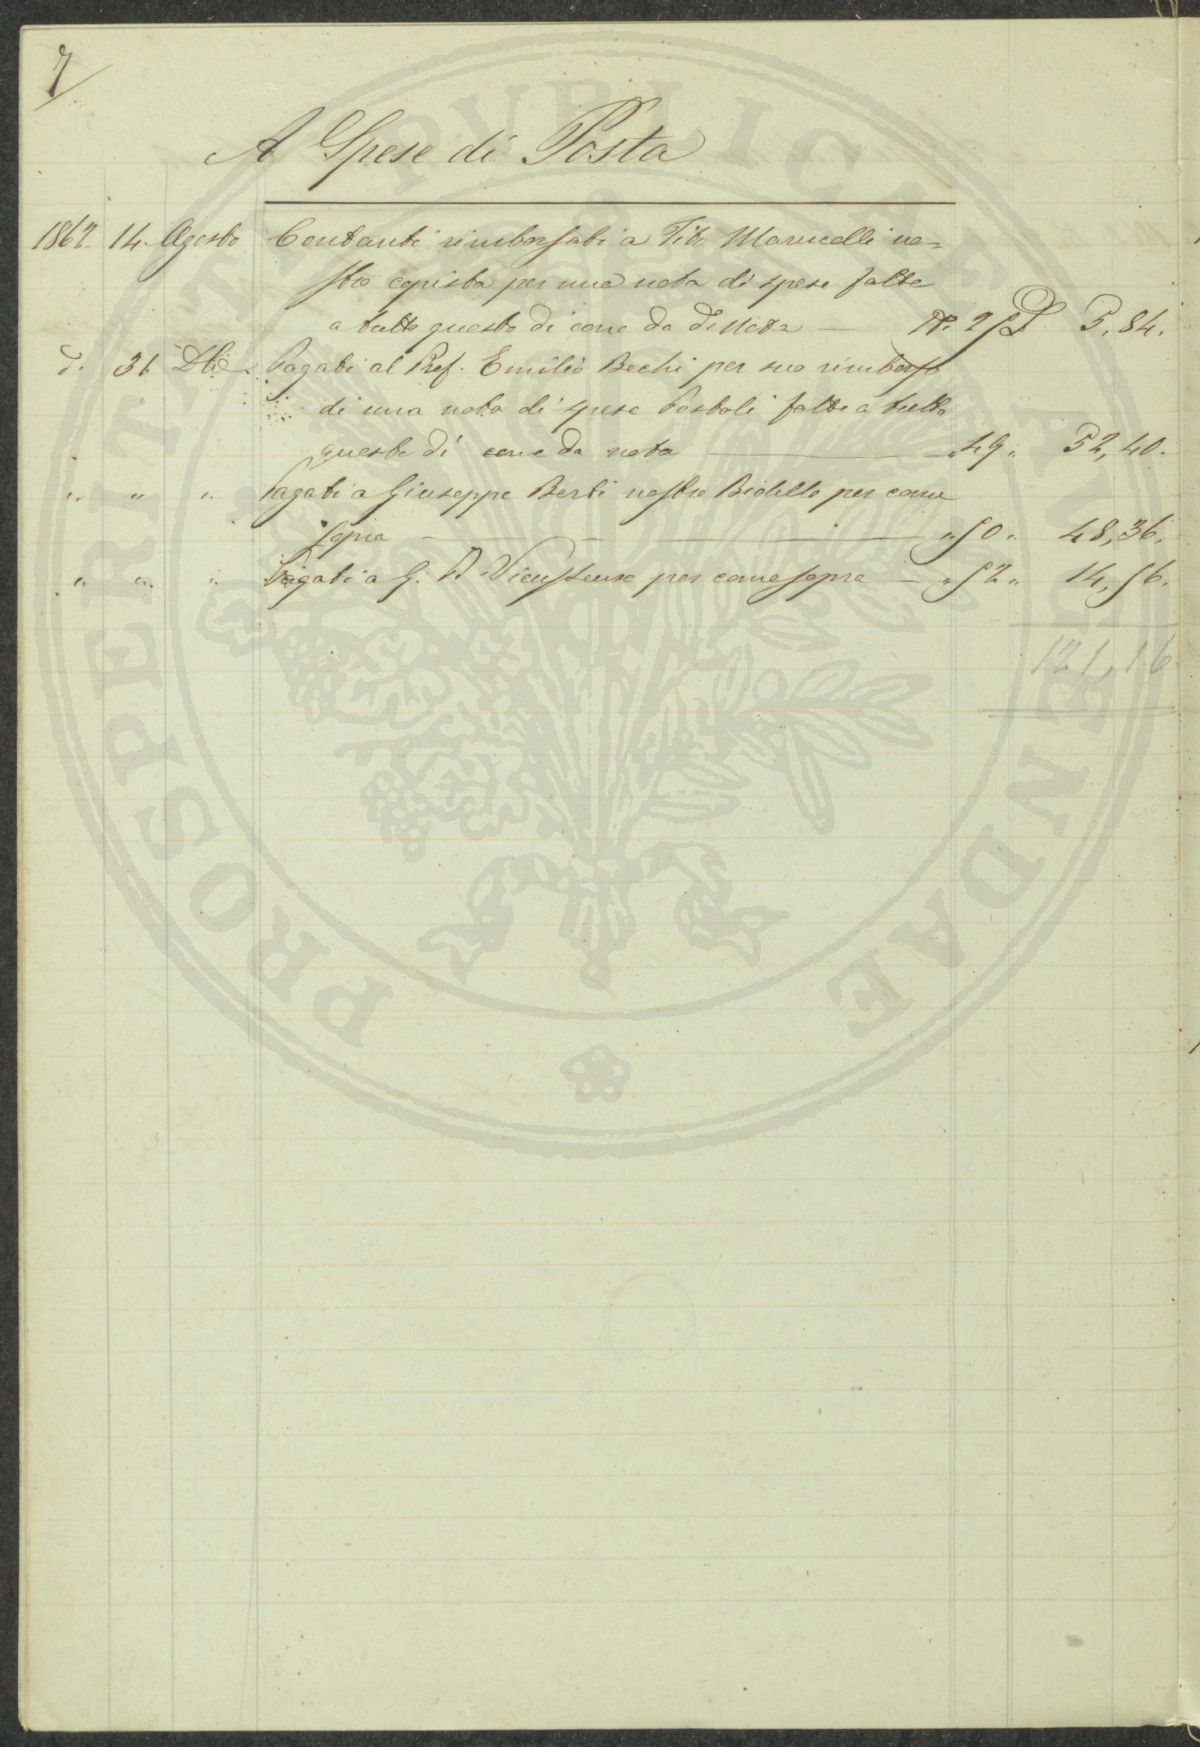 7
A Spese di Posta
1862 14 Agosto Contanti rimborsati a Tito Marucelli no=
stro copista per una nota di spese fatte
a tutto questo dì come da dì Nota — N. 25 5,84.
d. 31 Dbe Pagati al Prof. Emilio Bechi per suo rimborso
di una nota di spese Postali fatte a tutto
questo dì come da nota — „ 49 „ 52,40.
„ „ „ Pagati a Giuseppe Berti nostro Bidello per come
sopra — „ 50 „ 48,36.
„ „ „ Pagati a G. P. Vieusseux per come sopra — „ 52 „ 14,56.
121,16
PROSPERITATI PVBLICAE AVGENDAE